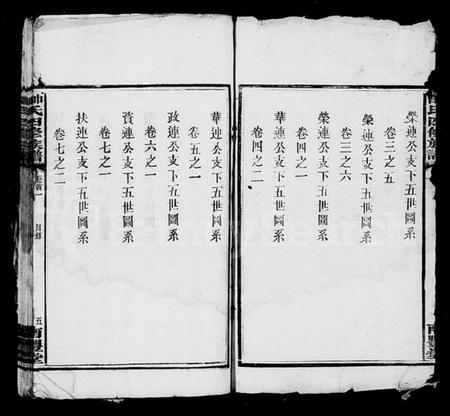 榮連公支下五世圖系
卷三之五
榮連公支下五世圖系
卷三之六
華連公支下五世圖系
卷四之一
卷四之二
華連公支下五世圖系
卷五之一
政連公支下五世圖系
卷六之一
資連公支下五世圖系
卷七之一
扶連公支下五世圖系
卷七之二
氏四修族譜
卷首一
目錄
五
南豐堂